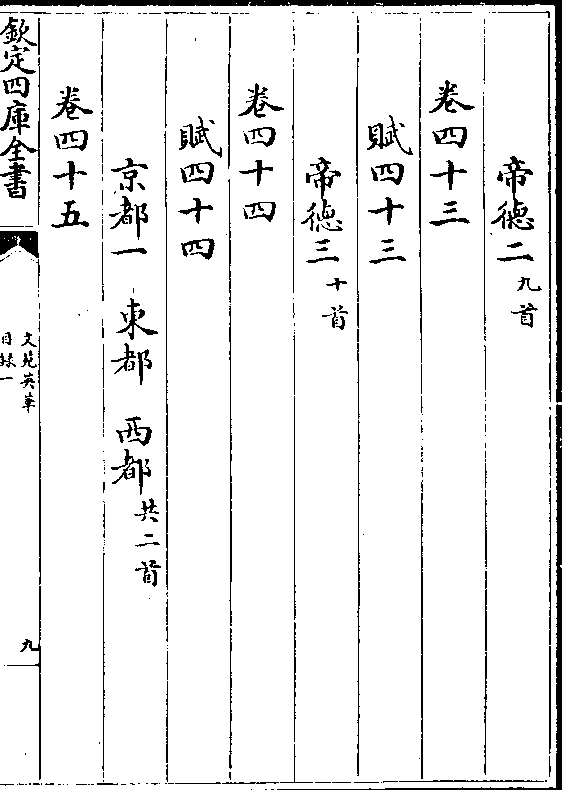 帝德二九首
卷四十三
賦四十三
帝德三十首
卷四十四
賦四十四
京都一 東都 西都共二首
卷四十五
欽定四庫全書
文苑英華
目錄一
九